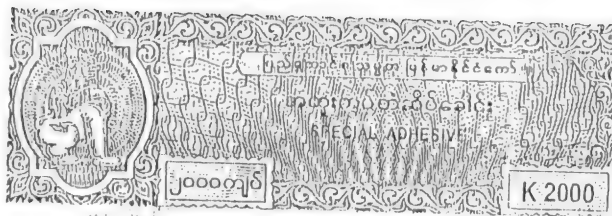 ပြည်ထောင်စုသမ္မတ မြန်မာနိုင်ငံတော်
အထူးကပ်တံဆိပ်ခေါင်း
SPECIAL ADHESIVE
၂၀၀၀ကျပ်
K 2000